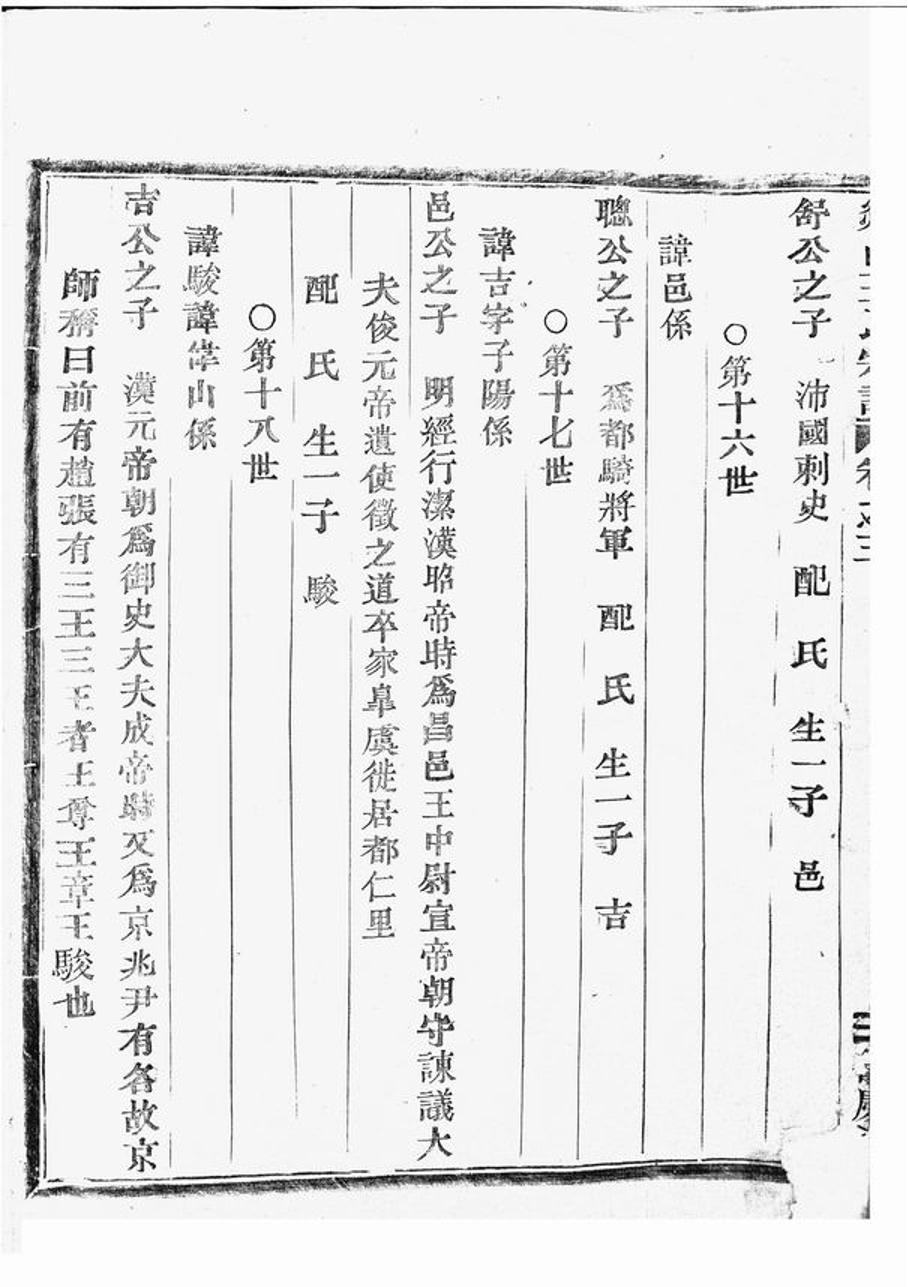 王氏宗譜 卷之三
舒公之子 沛國刺史 配 氏 生一子 邑
○第十六世
諱邑係
聰公之子 爲都騎將軍 配 氏 生一子 吉
○第十七世
諱吉字子陽係
邑公之子 明經行潔漢昭帝時爲昌邑王中尉宣帝朝守諫議大
夫後元帝遣使徵之道卒家臯虞徙居都仁里
配 氏 生一子 駿
○第十八世
諱駿諱偉山係
吉公之子 漢元帝朝爲御史大夫成帝時又爲京兆尹有各故京
師稱曰前有趙張有三王三王者王尊王章王駿也